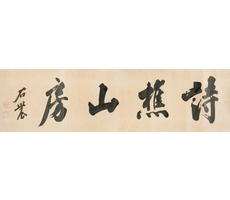 詩樵山房
石